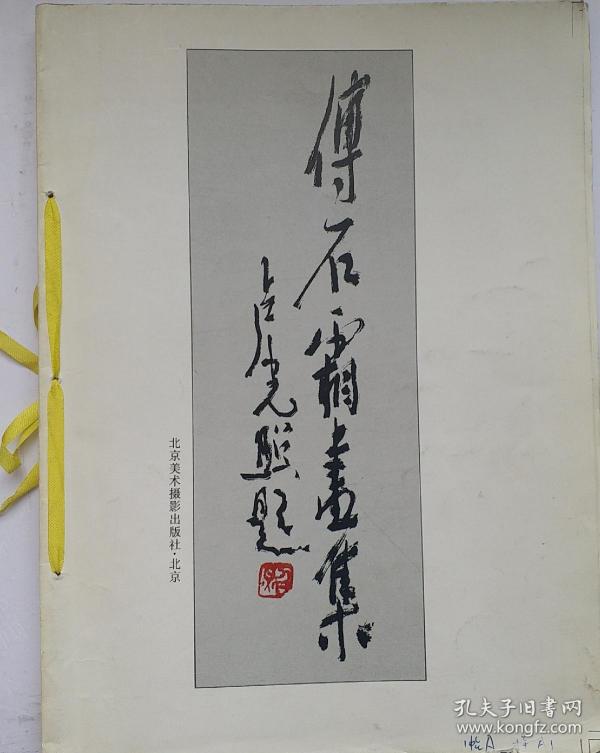 傅石霜畫集
卢光照題
北京美术摄影出版社·北京
孔夫子旧书网
www.kongfz.com